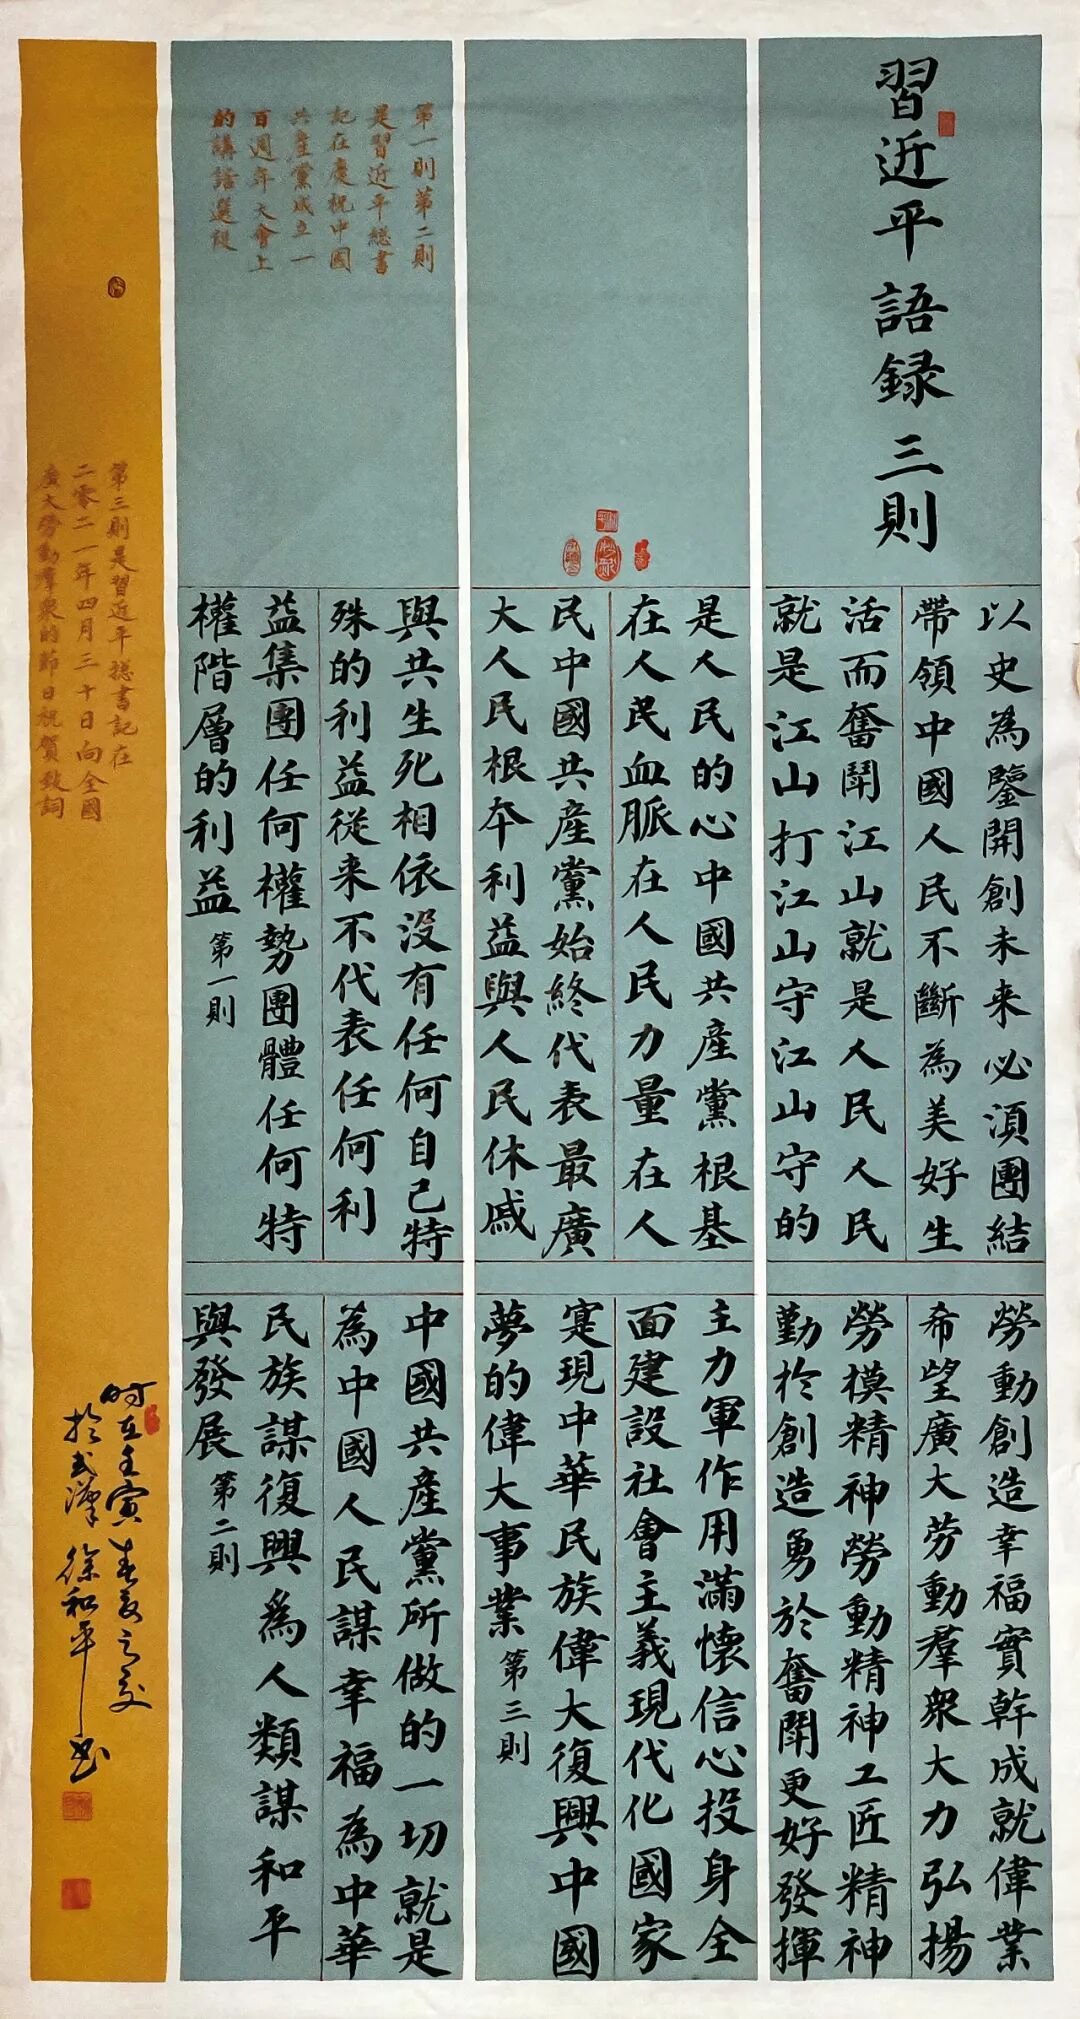 習近平語録三則
以史為鑒開創未来必須團結
帶領中國人民不斷為美好生
活而奮鬪江山就是人民人民
就是江山打江山守江山守的
是人民的心中國共産黨根基
在人民血脈在人民力量在人
民中國共産黨始終代表最廣
大人民根本利益與人民休戚
與共生死相依没有任何自己特
殊的利益從来不代表任何利
益集團任何權勢團體任何特
權階層的利益 第一則
勞動創造幸福實幹成就偉業
希望廣大劳動羣衆大力弘揚
勞模精神勞動精神工匠精神
勤於創造勇於奮鬪更好發揮
主力軍作用滿懷信心投身全
面建設社會主義現代化國家
寔現中華民族偉大復興中國
夢的偉大事業 第三則
中國共産黨所做的一切就是
為中國人民謀幸福為中華
民族謀復興為人類謀和平
與發展 第二則
第一則第二則
是習近平總書
記在慶祝中國
共產黨成立一
百週年大會上
的講話選段
第三則是習近平總書記在
二零二一年四月三十日向全國
廣大勞動羣衆的節日祝賀致詞
时在壬寅春夏之交
於武漢 徐和平书